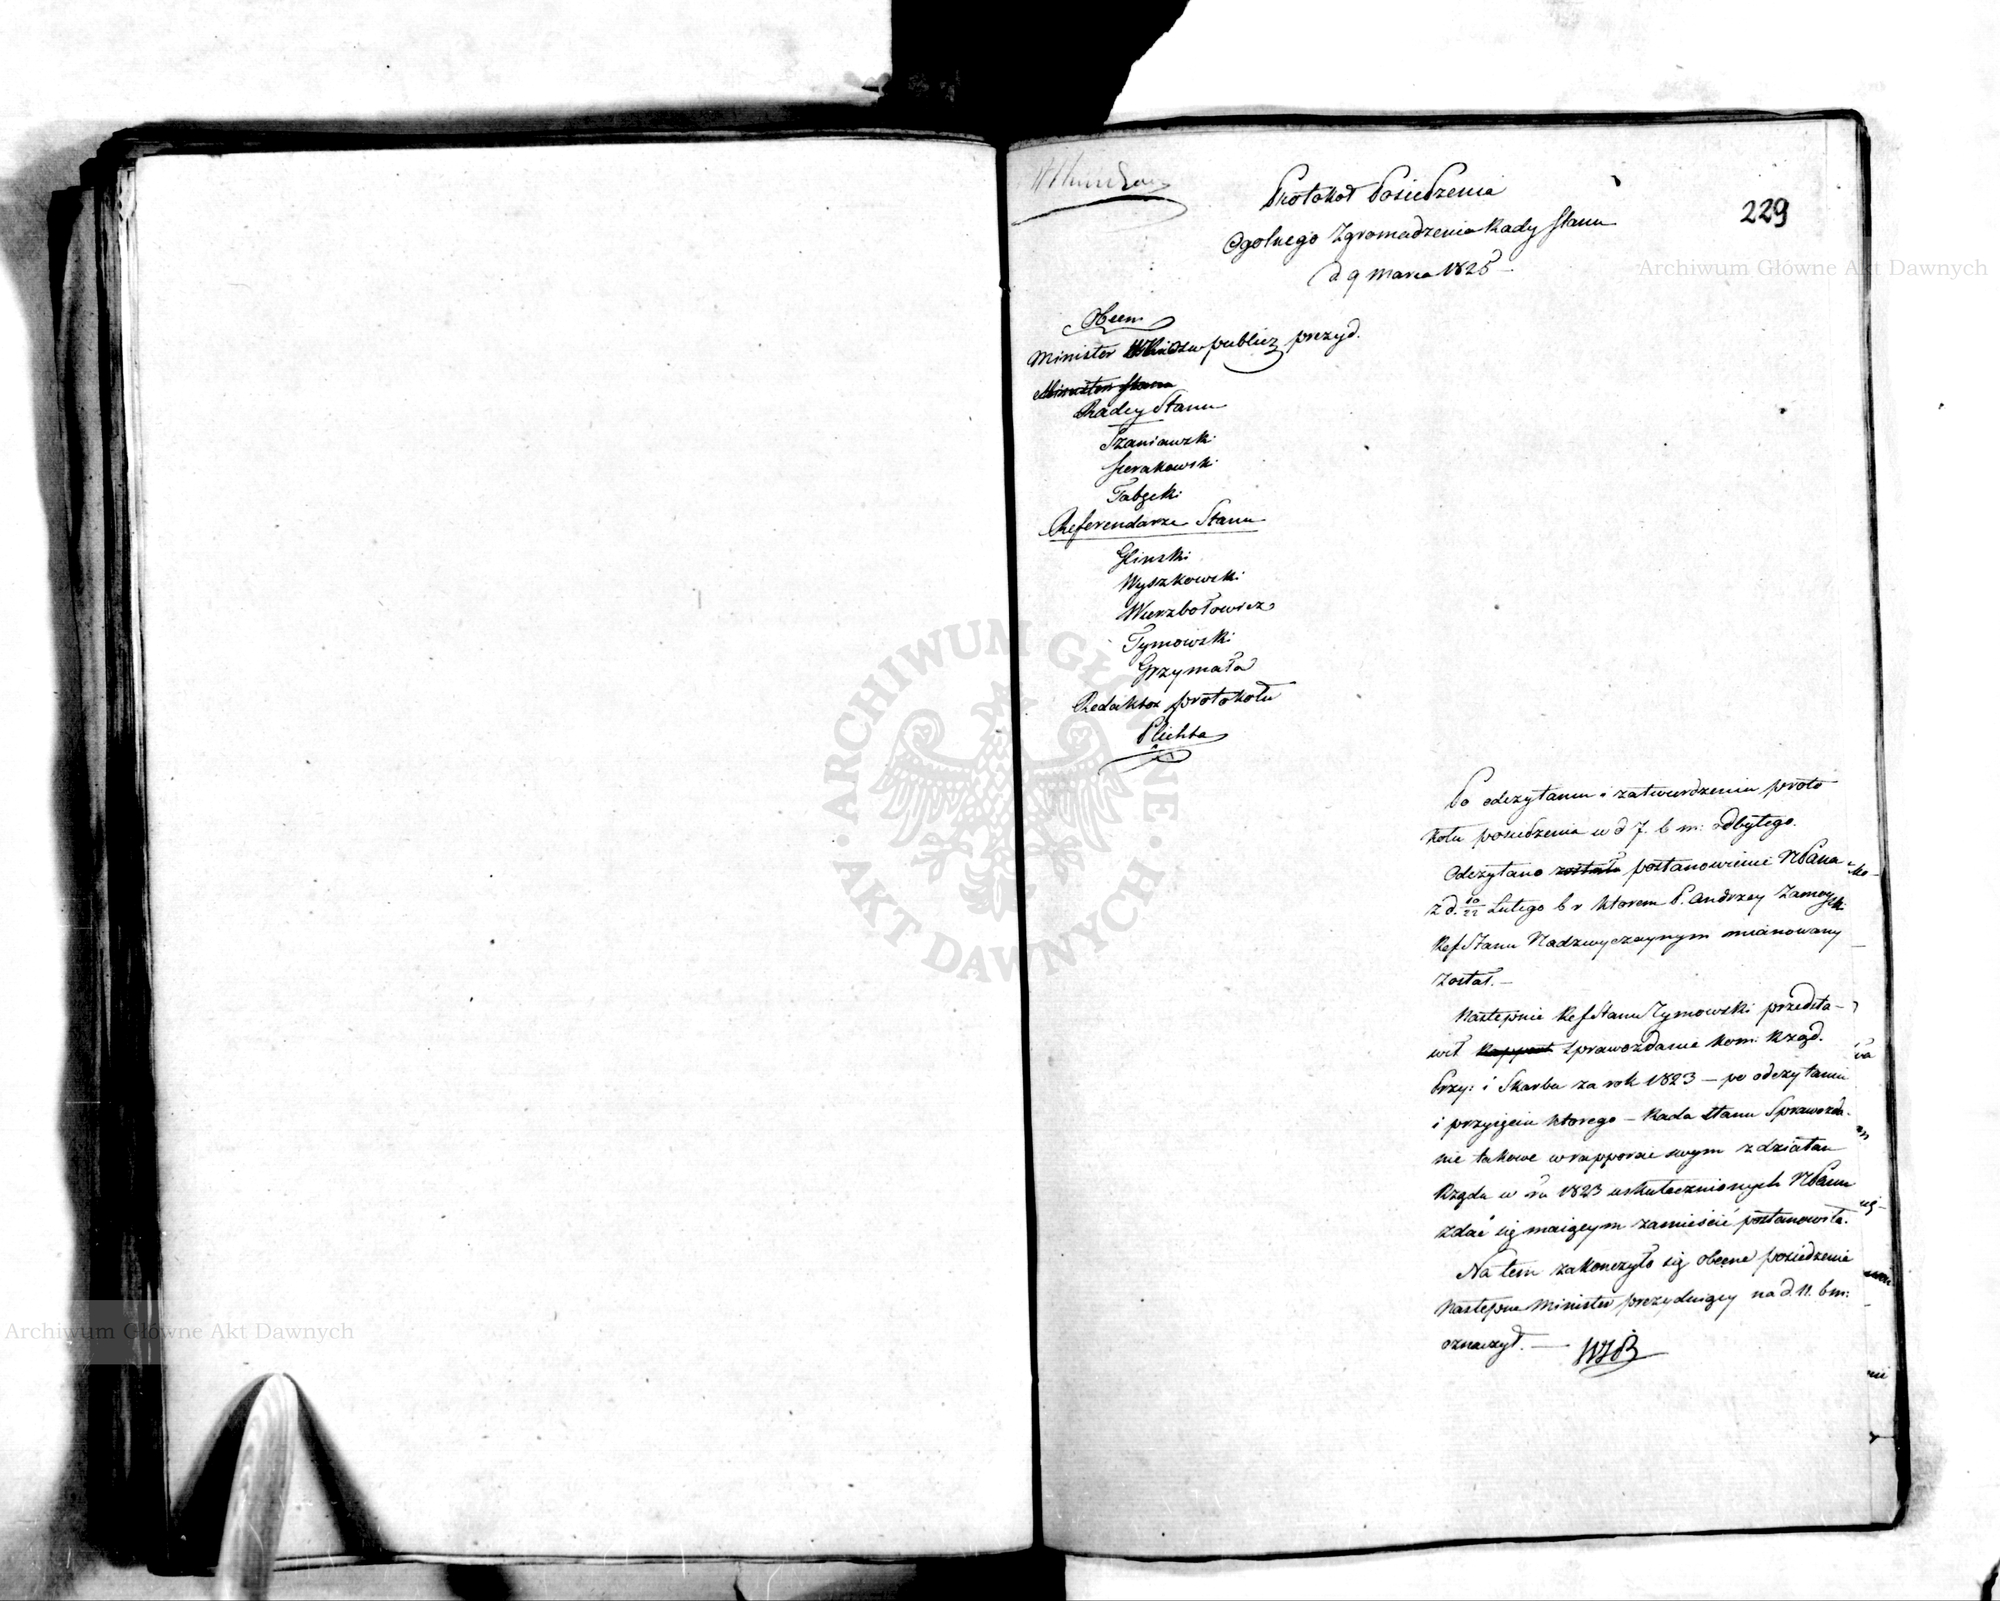 229
Protokoł Posiedzenia
Ogolnego Zgromadzenia Rady Stanu
d 9 Marca 1825 –
Obecni
Minister publicz prezyd.
Minister Stanu
Radcy Stanu
Szaniawski
Sierakowski
Tabęcki
Referendarze Stanu
Glinski
Wyszkowski
Wierzbołowicz
Tymowski
Grzymała
Redaktor protokołu
Plichta
Po odczytaniu i zatwierdzeniu proto
kołu posiedzenia w d 7. b m: odbytego.
Odczytano została postanowienie NPana
z d. 10/22 Lutego b r ktorem P. Andrzey Zamoyski
Ref Stanu Nadzwyczaynym mianowany
został. –
Następnie Ref Stanu Tymowski przedsta–
wił Rapport Sprawozdanie Kom: Rząd.
Przy: i Skarbu za rok 1823 – po odczytaniu
i przyięciu ktorego – Rada Stanu Sprawozda-
nie takowe w rapporcie swym z działań
Rządu w ru 1823 uskutecznionych NPanu
zdać się maiącym zamieścić postanowiła.
Na tem zakonczyło się obecne posiedzenie
następne Minister prezyduiący na d. 11. b m:
oznaczył. —
Archiwum Główne Akt Dawnych
Archiwum Główne Akt Dawnych
ARCHIWUM GŁÓWNE · AKT DAWNYCH ·